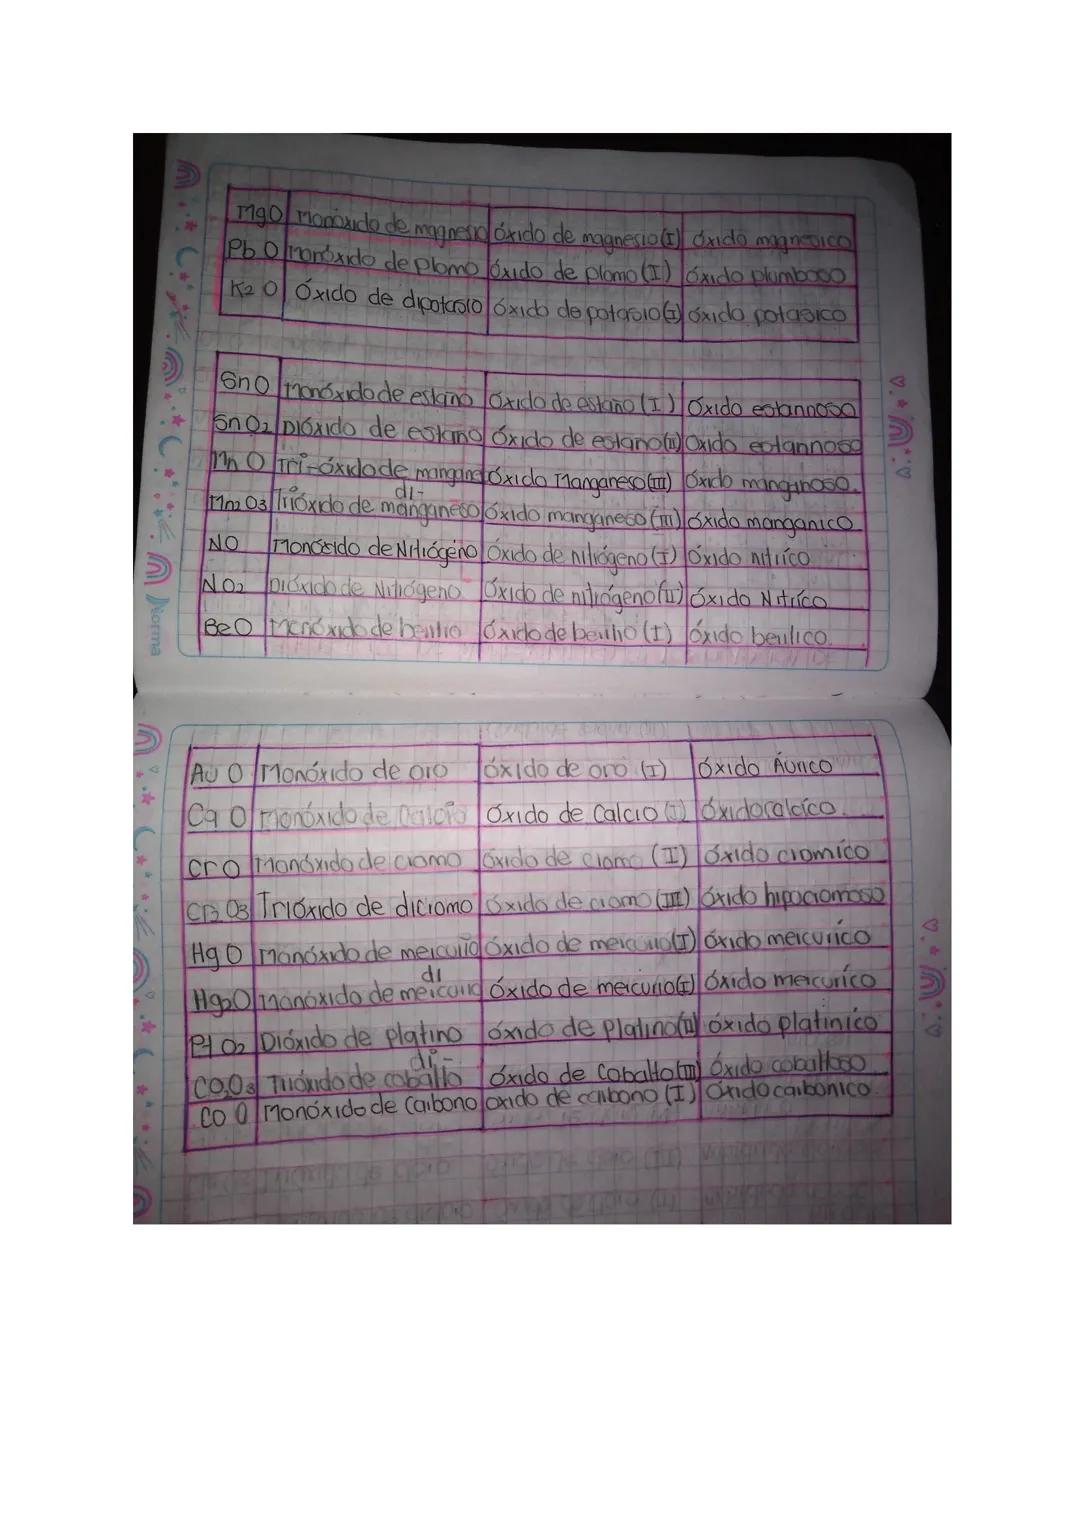 MgO Monóxido de magnesio óxido de magnesio (I) óxido magnesico
Pb O Monóxido de plomo óxido de plomo (I) óxido plumboso
K2 O Óxido de dipotasio óxido de potasio (I) óxido potasico
SnO Monóxido de estaño Óxido de estaño (I) Óxido estannoso
SnO2 Dióxido de estaño Óxido de estaño (II) Óxido estannoso
Mn O Tri-óxido de mangane óxido Manganeso (III) Óxido manganoso.
di-
Mn2 O3 Trióxido de manganeso óxido manganeso (III) óxido manganico
NO Monóxido de Nitrógeno Óxido de nitrógeno (I) Óxido nitríco
NO2 Dióxido de Nitrógeno Óxido de nitrógeno (II) óxido Nitríco
BeO Monóxido de berilio óxido de berilio (I) óxido berilico.
Norma
Au O Monóxido de oro óxido de oro (I) óxido Áurico
Ca O Monóxido de Calcio Óxido de Calcio (I) Óxido calcíco.
Cr O Monóxido de cromo óxido de cromo (II) óxido cromíco
Cr2 O3 Trióxido de dicromo óxido de cromo (III) óxido hipocromoso
Hg O Monóxido de mercurio óxido de mercurio (I) óxido mercuríco
di
Hg2O Monóxido de mercurio óxido de mercurio (I) óxido mercuríco
Pt O2 Dióxido de platino óxido de platino (II) óxido platiníco
di-
CO2O3 Trióxido de cobalto óxido de Cobalto (III) óxido cobaltoso
CO O Monóxido de Carbono oxido de carbono (I) Óxido carbonico